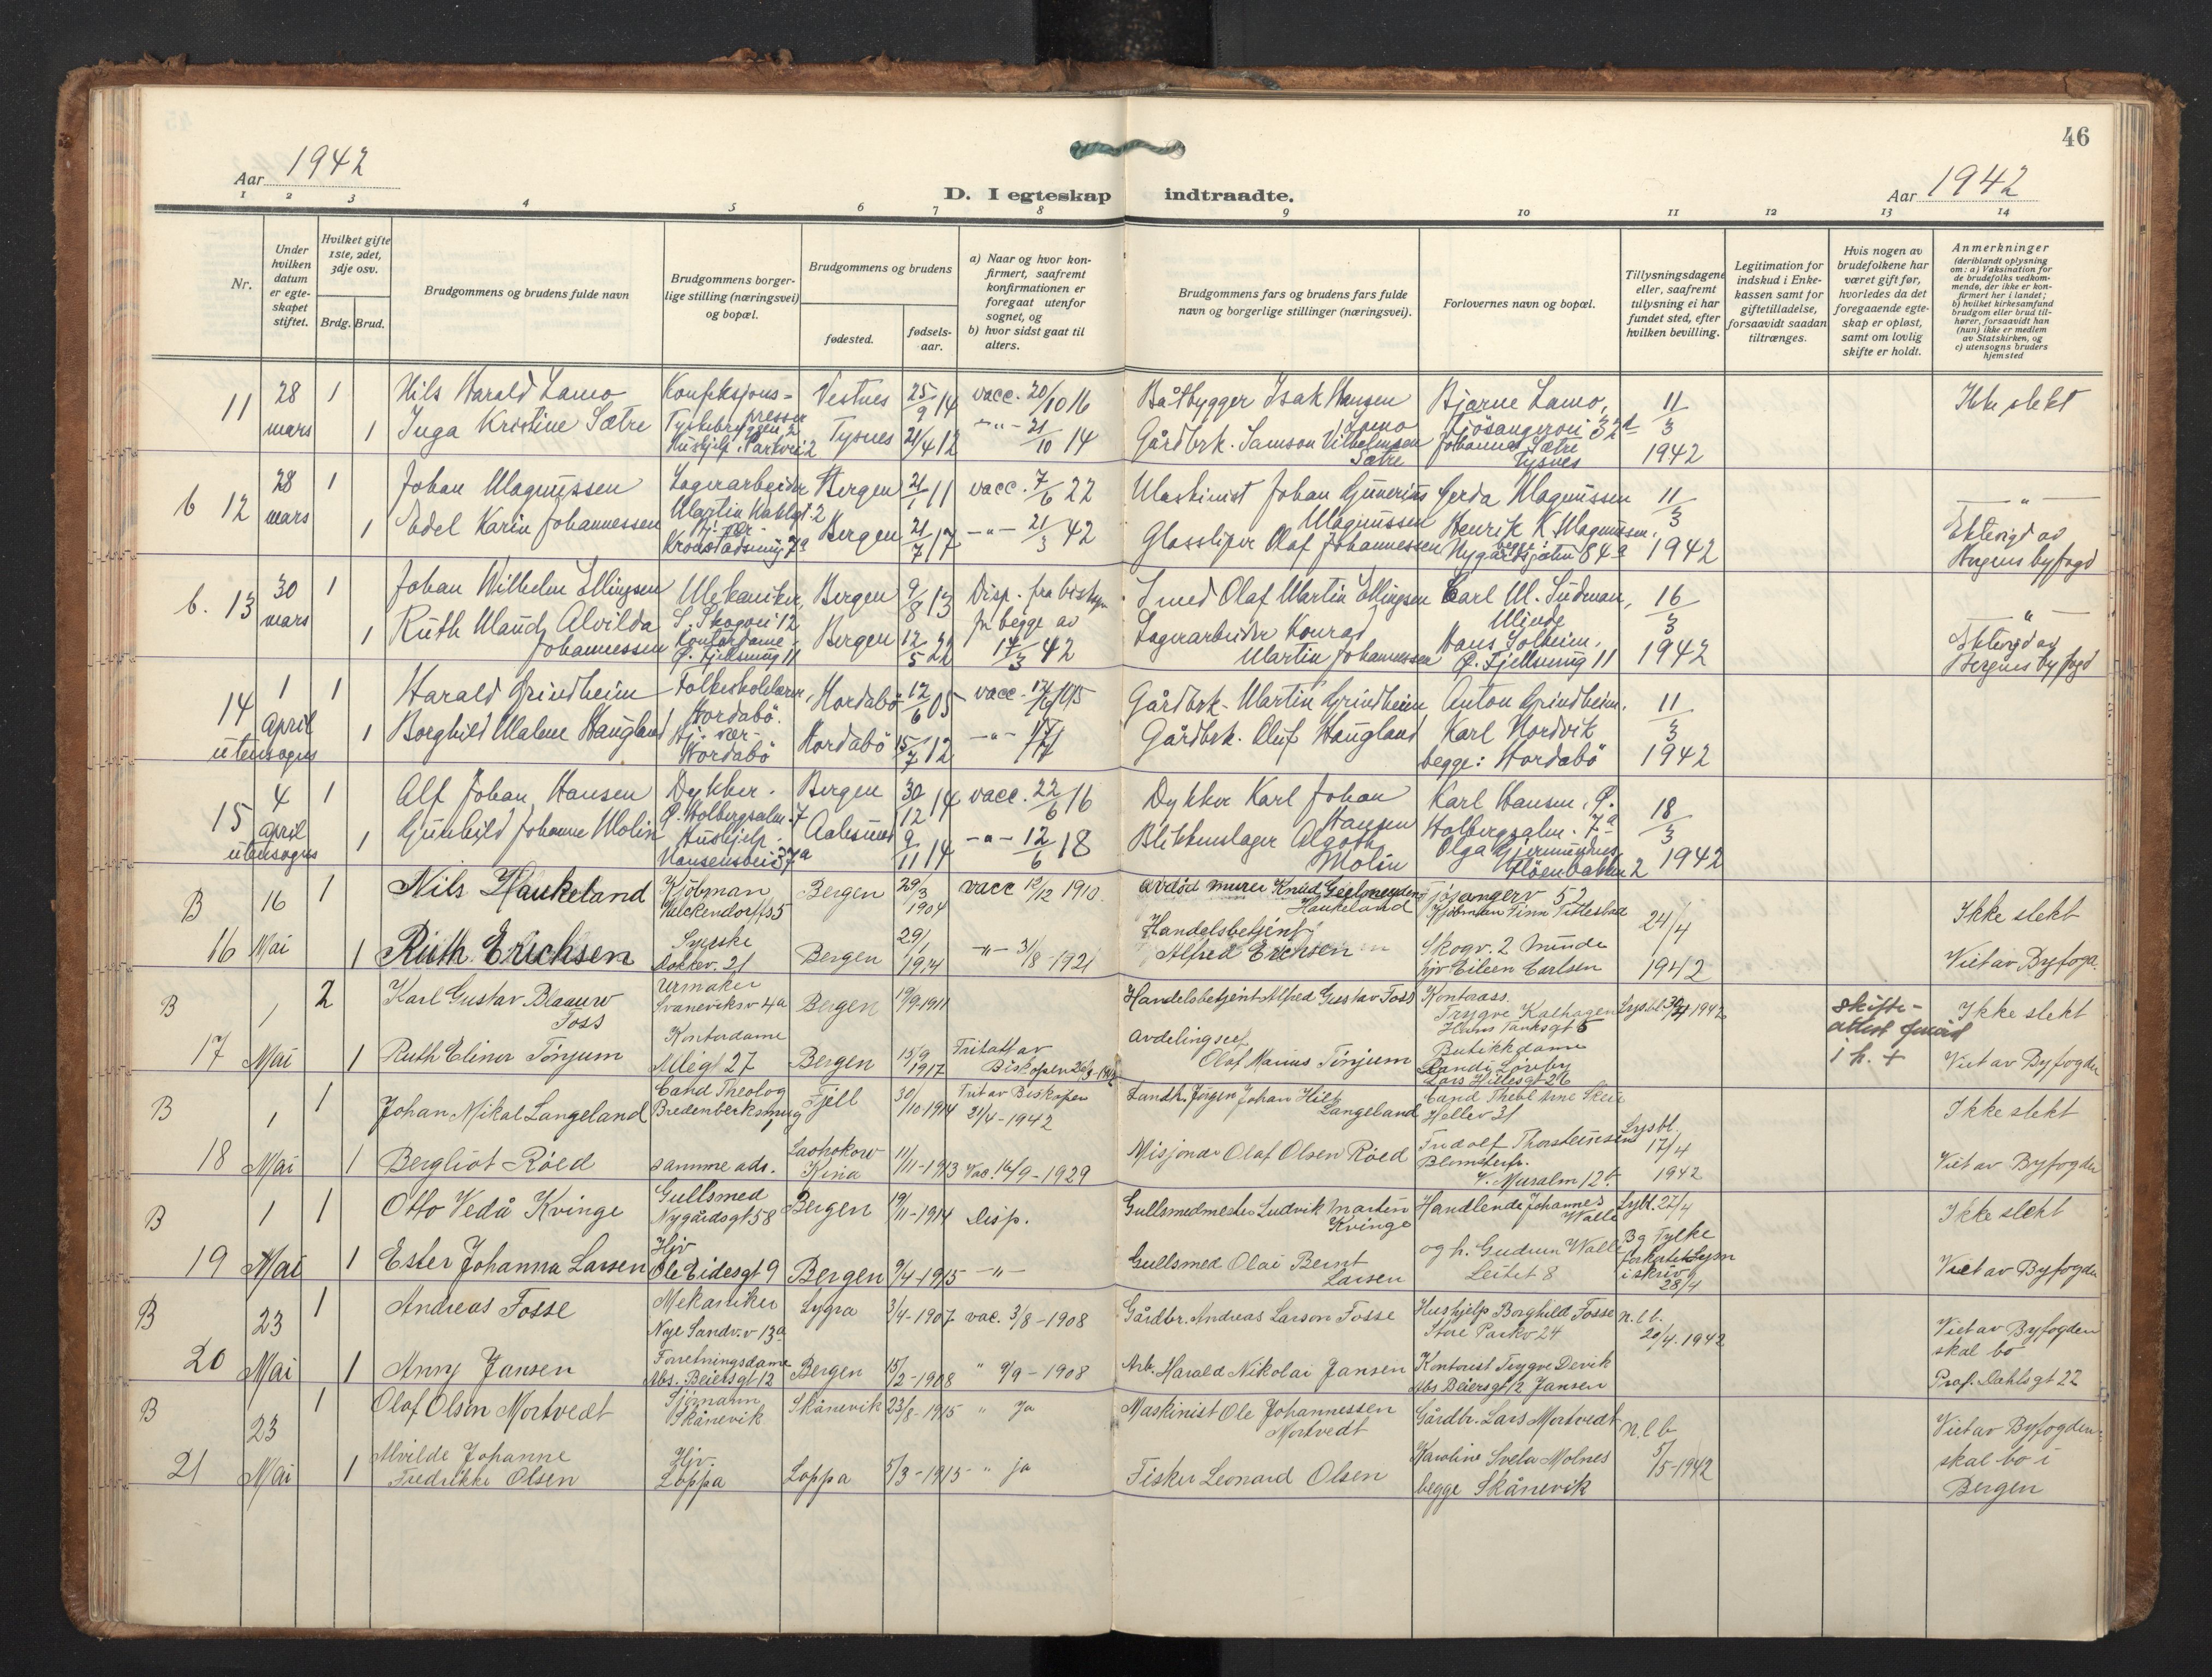 46
Aar 1942
D. I egteskap indtraadte.
Aar 1942
1 2 3 4 5 6 7 8 9 10 11 12 13 14
Nr.
Under hvilken datum er egteskapet stiftet.
Hvilket gifte 1ste, 2det, 3dje osv.
Brdg. Brud.
Brudgommens og brudens fulde navn
Brudgommens borgerlige stilling (næringsvei) og bopæl.
Brudgommens og brudens
fødested.
fødselsaar.
a) Naar og hvor konfirmert, saafremt konfirmationen er foregaat utenfor sognet, og
b) hvor sidst gaat til alters.
Brudgommens fars og brudens fars fulde navn og borgerlige stillinger (næringsvei).
Forlovernes navn og bopæl.
Tillysningsdagene eller, saafremt tillysning ei har fundet sted, efter hvilken bevilling.
Legitimation for indskud i Enkekassen samt for giftetilladelse, forsaavidt saadan tiltrænges.
Hvis nogen av brudefolkene har været gift før, hvorledes da det foregaaende egteskap er opløst, samt om lovlig skifte er holdt.
Anmerkninger (deriblandt oplysning om: a) Vaksination for de brudefolks vedkommende, der ikke er konfirmert her i landet; b) hvilket kirkesamfund brudgom eller brud tilhører, forsaavidt han (hun) ikke er medlem av Statskirken, og c) utensogns bruders hjemsted
11 28 mars 1 Nils Harald Lamo Konfeksjonspresser Tyskebryggen 2 Vestnes 25/9 14 vacc. 20/10 16 Båtbygger Isak Hansen Lamo Bjarne Lamo, 11/3 1942 Ikke slekt
1 Inga Kristine Sætre Hushjelp. Parkvei 2 Tysnes 21/4 12 -"- 21/10 14 Gårdbrk. Samson Vilhelmsen Sætre Johannes Sætre Tysnes
b 12 28 mars 1 Johan Magnussen Lagerarbeider Bergen 21/1 11 vacc. 7/6 22 Maskinist Johan Gunerius Magnussen Gerda Magnussen 11/3 1942 - " -
1 Edel Karin Johannessen Hj. vær. Kronstadsmug 7a Bergen 21/7 17 -"- 21/3 42 Glassliper Olaf Johannessen Henrik K. Magnussen. begge: Nygårdsgaten 84a Ektevigd av Bergens byfogd
b. 13 30 mars 1 Johan Wilhelm Ellingsen Mekaniker, S. Skogvei 12 Bergen 9/8 13 Disp. fra biskopen for begge av 17/3 42 Smed Olaf Martin Ellingsen Carl M. Sudman, Minde 16/3 1942 - " -
1 Ruth Maud Alvilda Johannessen Kontordame, Ø. Fjellsmug 11 Bergen 12/5 22 Lagerarbeider Konrad Martin Johannessen Hans Solheim. Ø. Fjellsmug 11 Ektevigd av Bergens byfogd
14 1 April utensogns 1 Harald Grindheim Folkeskolelærer, Hordabö. Hordabö 12/6 05 vacc. Gårdbrk. Martin Grindheim Anton Grindheim. 11/3 1942
1 Borghild Malene Haugland Hj. vær. Hordabö Hordabö 15/7 12 -"- Gårdbrk. Oluf Haugland Karl Nordvik begge: Hordabö
15 4 April utensogns 1 Alf Johan Hansen Dykker. Ø. Holbergsalm. 7 Bergen 30/12 14 vacc. 22/6 16 Dykker Karl Johan Hansen Karl Hansen, Ø. Holbergsalm. 7a 18/3 1942
1 Gunhild Johanne Molin Hushjelp. Nansensvei 37a Aalesund 9/11 14 -"- 12/6 18 Blikkenslager Algoth Molin Olga Gjermundnes Fløenbakken 2
B 16 16 Mai 1 Nils Haukeland Kjöbman Valckendorffs 5 Bergen 29/3 1904 vacc 19/12 1910. avdöd murer Knud Geelmeyden Haukeland Fjösangerv 52 Kjöbman Finn Titlestad 24/4 1942 Ikke slekt
1 Ruth Erichsen Syerske Dokkev. 21 Bergen 29/1 1914 -"- 3/8 - 1921 Handelsbetjent Alfred Erichsen Skogv. 2 Minde hjv Eileen Carlsen Viet av Byfogd.
B 17 1 Mai 2 Karl Gustav Blaauw Foss Urmaker Svaneviksv 4a Bergen 19/9 1911 Handelsbetjent Alfred Gustav Foss Kontorass. Trygve Kalhagen Hans Tanksgt 5 Lysbl. 30/4 1942 skifteattest i h. + Ikke slekt
1 Ruth Elinor Tönjum Kontordame Allegt 27 Bergen 15/9 1917 Fritatt av Biskopen Avdelingssjef Olaf Marius Tönjum Butikkdame Randi Lövby Lars Hillesgt 26 Viet av Byfogden
B 18 1 Mai 1 Johan Nikal Langeland Cand Theolog Bredenbecksmug Fjell 30/10-1914 Frit av Biskopen 21/4-1942 Landh. Jörgen Johan Hilt Langeland Cand Theol Arne Skeie Hellev 31 Lysbl. 17/4 1942 Ikke slekt
1 Bergliot Röed samme ads. Laohokow Kina 11/11-1913 Vac. 16/9-1929 Misjonær Olaf Olsen Röed Fridolf Thorsteinsen Blomsterfr. V. Muralm 12b. Viet av Byfogden
B 19 1 Mai 1 Otto Vedå Kvinge Gullsmed Nygårdsgt 58 Bergen 19/11-1914 Disp. Gullsmedmester Ludvik Marten Kvinge Handlende Johannes Walle Lysbl. 27/4 Ikke slekt
1 Ester Johanna Larsen Hjv Ole Eidesgt 9 Bergen 9/4-1915 -"- Gullsmed Olai Bernt Larsen og h. Gudrun Walle Leitet 8 Bg Fylke forkortet Lysn i skriv 28/4 Viet av Byfogden
B 20 23 Mai 1 Andreas Fosse Mekaniker Nye Sandv.v 13a Lygra 3/4-1907 vac. 3/8-1908 Gårdbr. Andreas Larson Fosse Hushjelp Borghild Fosse Store Parkv 24 n.l.b. 20/4.1942 Viet av Byfogden skal bo
1 Anny Jansen Forretningsdame Abs. Beiersgt 12 Bergen 15/2-1908 " 9/9-1908 Arb. Harald Nikolai Jansen Kontorist Trygve Devik Abs Beiersgt 12 Jansen Prof. Dahlsgt 22
B 21 23 Mai 1 Olaf Olsen Mortvedt Sjömann Skånevik Skånevik 23/8-1915 " ja Maskinist Ole Johannessen Mortvedt Gårdbr. Lars Mortvedt n.l.b. 5/5-1942 Viet av Byfogden
1 Alvilde Johanne Fredrikke Olsen Hjv. Loppa Loppa 5/3-1915- " ja Fisker Leonard Olsen Karoline Svela Molnes begge Skånevik skal bo i Bergen